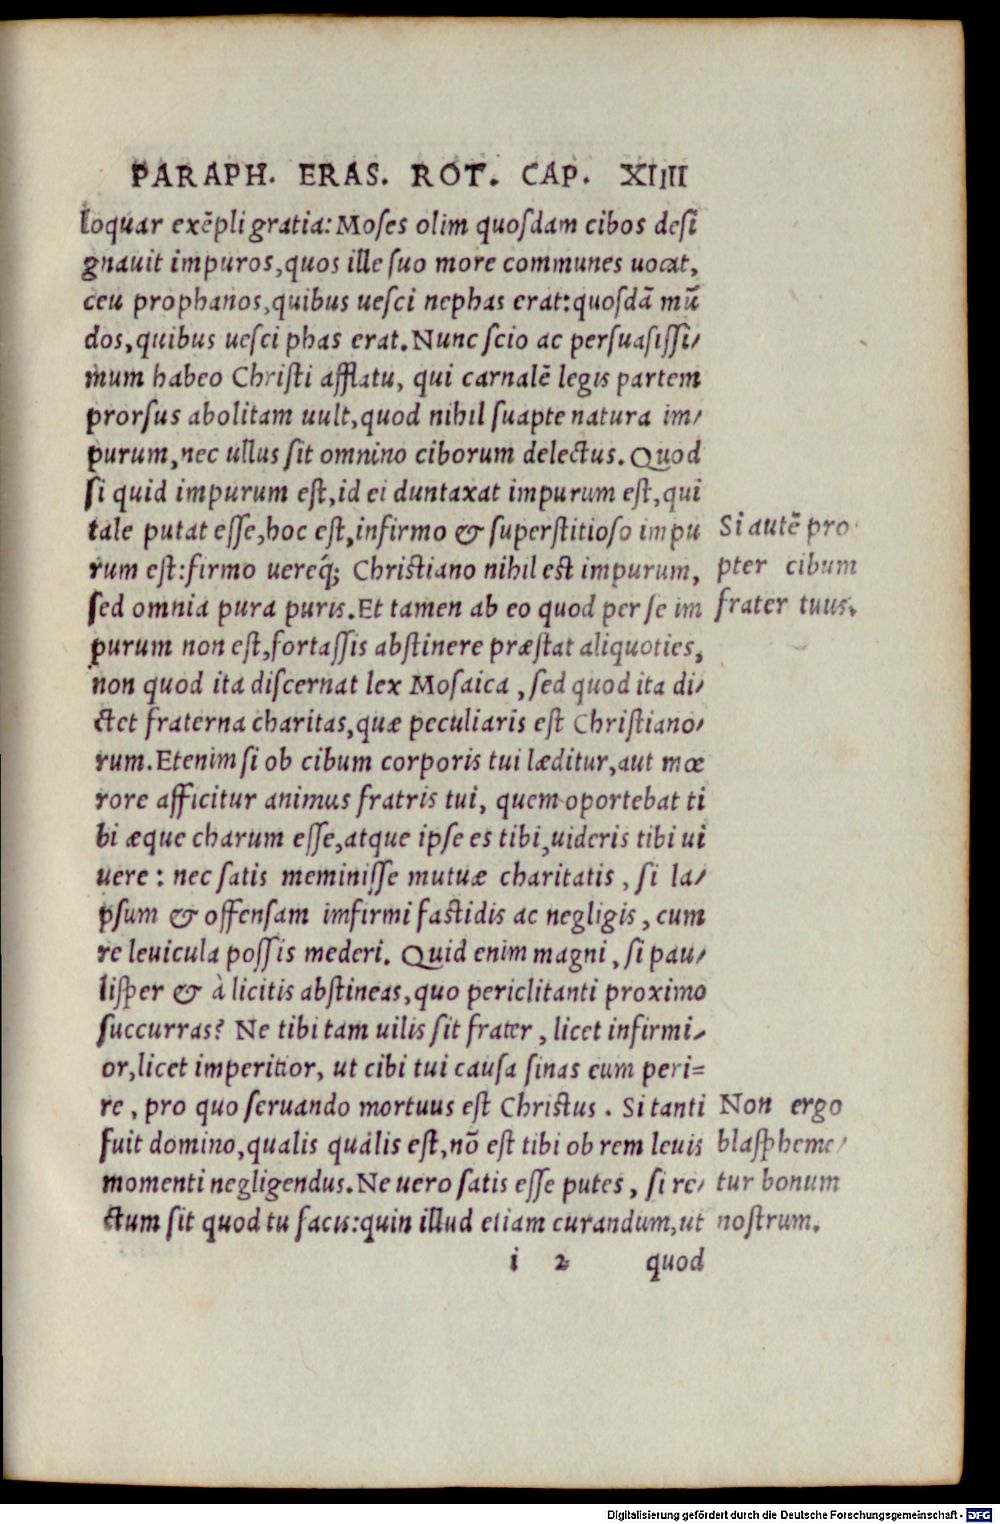 PARAPH. ERAS. ROT. CAP. XIIII
loquar exẽpli gratia: Moses olim quosdam cibos desi
gnauit impuros, quos ille suo more communes uocat,
ceu prophanos, quibus uesci nephas erat: quosdã mũ
dos, quibus uesci phas erat. Nunc scio ac persuasissi/
mum habeo Christi afflatu, qui carnalẽ legis partem
prorsus abolitam uult, quod nihil suapte natura im/
purum, nec ullus sit omnino ciborum delectus. Quod
si quid impurum est, id ei duntaxat impurum est, qui
tale putat esse, hoc est, infirmo & superstitioso impu
rum est: firmo uereq́; Christiano nihil est impurum,
sed omnia pura puris. Et tamen ab eo quod per se im
purum non est, fortassis abstinere præstat aliquoties,
non quod ita discernat lex Mosaica, sed quod ita di/
ctet fraterna charitas, quæ peculiaris est Christiano/
rum. Etenim si ob cibum corporis tui læditur, aut mœ
rore afficitur animus fratris tui, quem oportebat ti
bi æque charum esse, atque ipse es tibi, uideris tibi ui
uere: nec satis meminisse mutuæ charitatis, si la/
psum & offensam imfirmi fastidis ac negligis, cum
re leuicula possis mederi. Quid enim magni, si pau/
lisper & à licitis abstineas, quo periclitanti proximo
succurras? Ne tibi tam uilis sit frater, licet infirmi/
or, licet imperitior, ut cibi tui causa sinas eum peri=
re, pro quo seruando mortuus est Christus. Si tanti
fuit domino, qualis quàlis est, nõ est tibi ob rem leuis
momenti negligendus. Ne uero satis esse putes, si re/
ctum sit quod tu facis: quin illud etiam curandum, ut
i 2 quod
Si autẽ pro
pter cibum
frater tuus.
Non ergo
blaspheme/
tur bonum
nostrum.
Digitalisierung gefördert durch die Deutsche Forschungsgemeinschaft - DFG